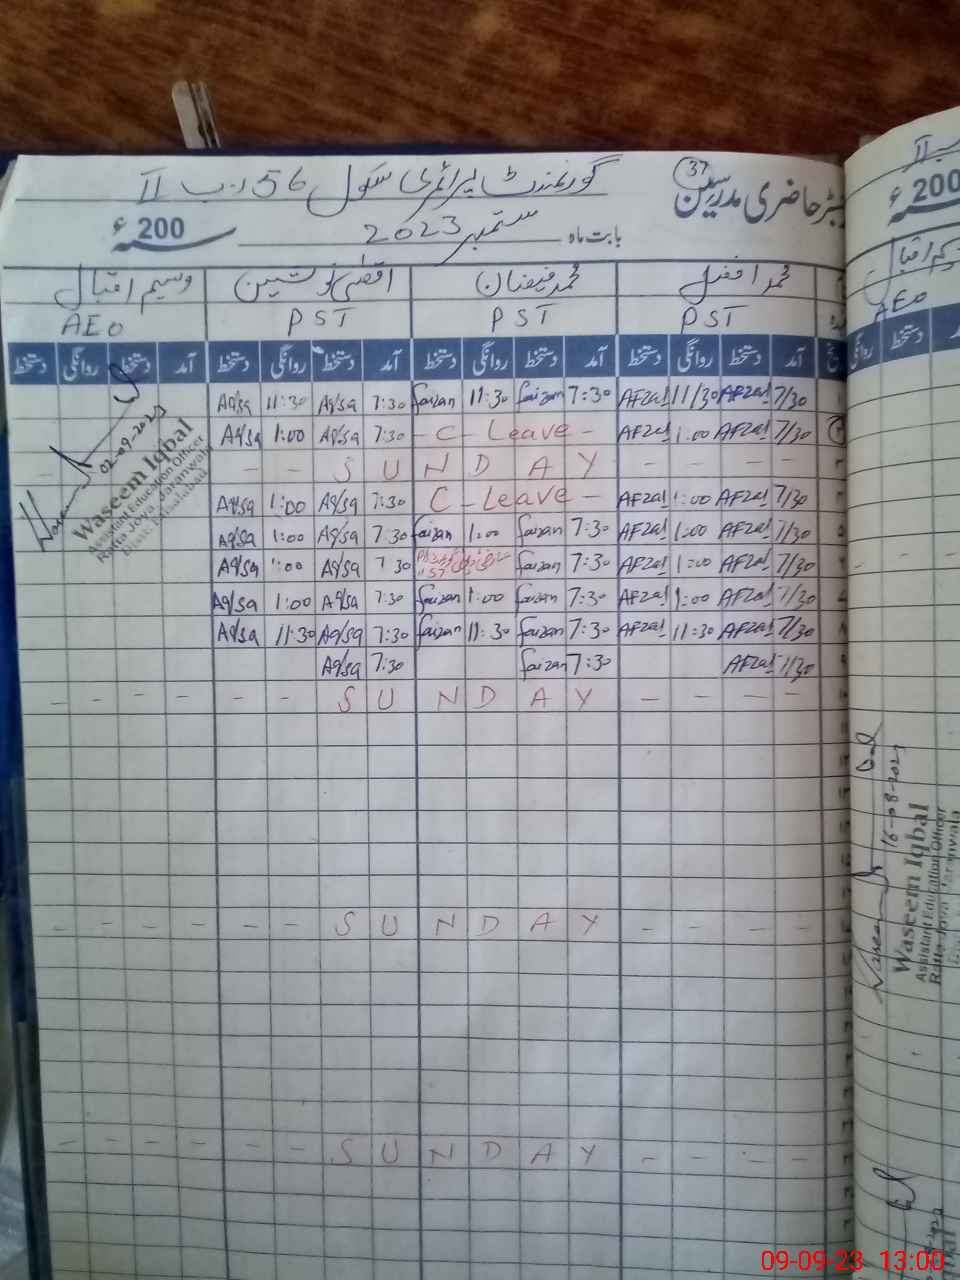 رجسٹر حاضری مدرسین
37
گورنمنٹ پرائمری سکول 56 ر.ب II
بابت ماہ ستمبر 2023 سنہ 200ء
محمد افضل محمد فیضان اقصیٰ نوشین وسیم اقبال
PST PST PST AEO
آمد دستخط روانگی دستخط آمد دستخط روانگی دستخط آمد دستخط روانگی دستخط آمد دستخط روانگی دستخط
Aqsa 11:30 Aqsa 7:30 faizan 11:30 faizan 7:30 AFzal 11/30 AFzal 7/30
Aqsa 1:00 Aqsa 7:30 - C - Leave - AFzal 1:00 AFzal 7/30
- - - S U N D A Y - - - -
Aqsa 1:00 Aqsa 7:30 C - Leave - AFzal 1:00 AFzal 7/30
Aqsa 1:00 Aqsa 7:30 faizan 1:00 faizan 7:30 AFzal 1:00 AFzal 7/30
Aqsa 1:00 Aqsa 7:30 faizan 7:30 AFzal 1:00 AFzal 7/30
Aqsa 1:00 Aqsa 7:30 faizan 1:00 faizan 7:30 AFzal 1:00 AFzal 7/30
Aqsa 11:30 Aqsa 7:30 faizan 11:30 faizan 7:30 AFzal 11:30 AFzal 7/30
Aqsa 7:30 faizan 7:30 AFzal 7/30
- - - - - - S U N D A Y - - - -
- - - - - - S U N D A Y - - - -
- - - - - - S U N D A Y - - - -
02-09-2023
Waseem Iqbal
Assistant Education Officer
Ratta Jova Jaranwala
Distt: Faisalabad
200
AEO
دستخط
روانگی
16-08-2023
Waseem Iqbal
Assistant Education Officer
Ratta Jova Jaranwala
09-09-23 13:00